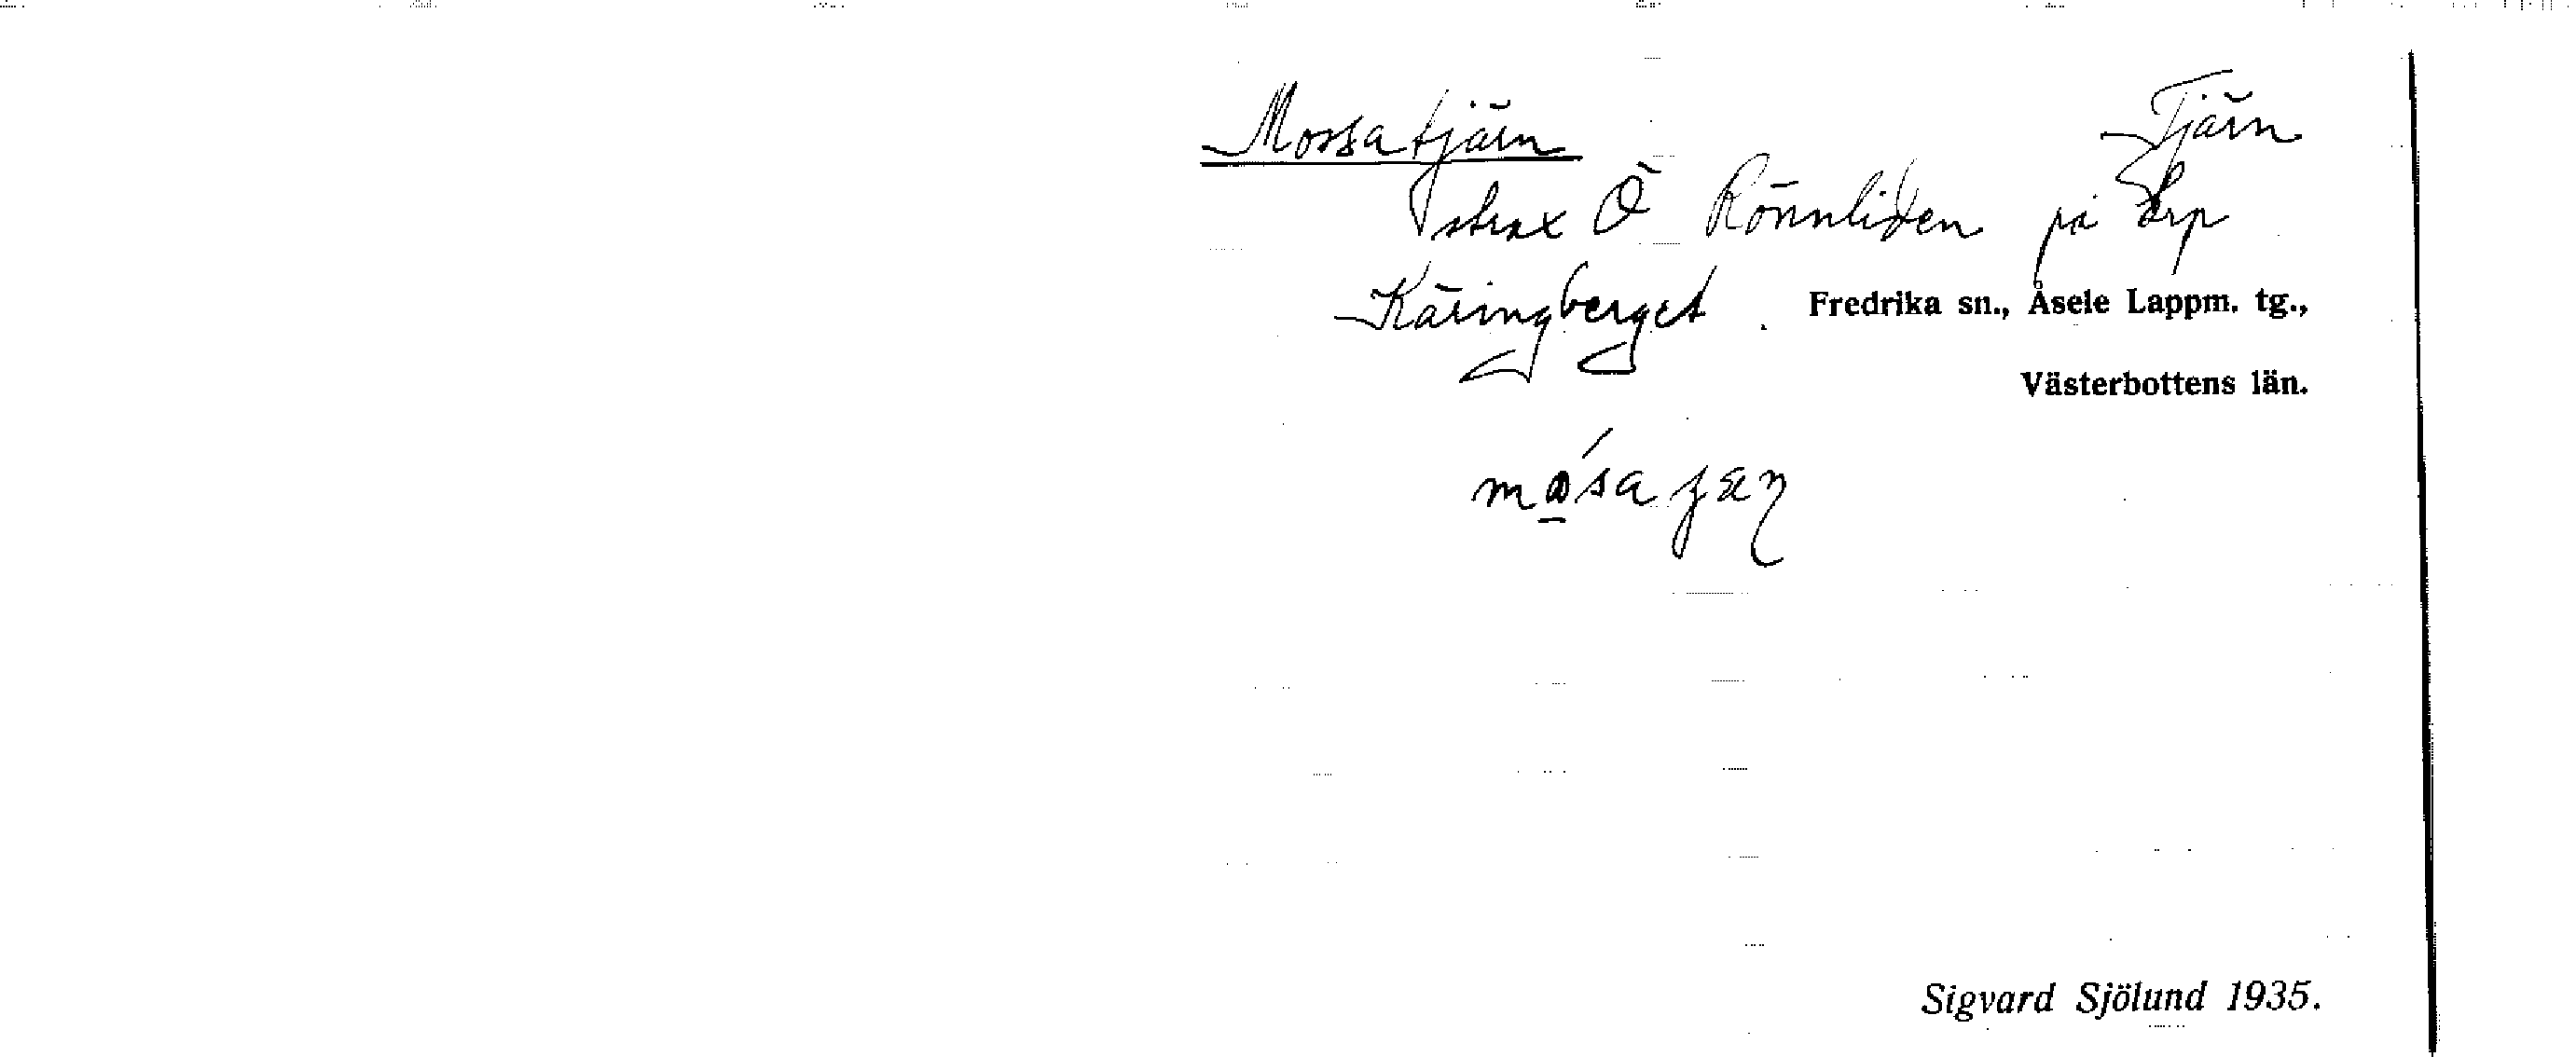 Mossatjärn Tjärn
strax Ö Rönnliden på krp
Käringberget. Fredrika sn., Åsele Lappm. tg.,
Västerbottens län.
Sigvard Sjölund 1935.